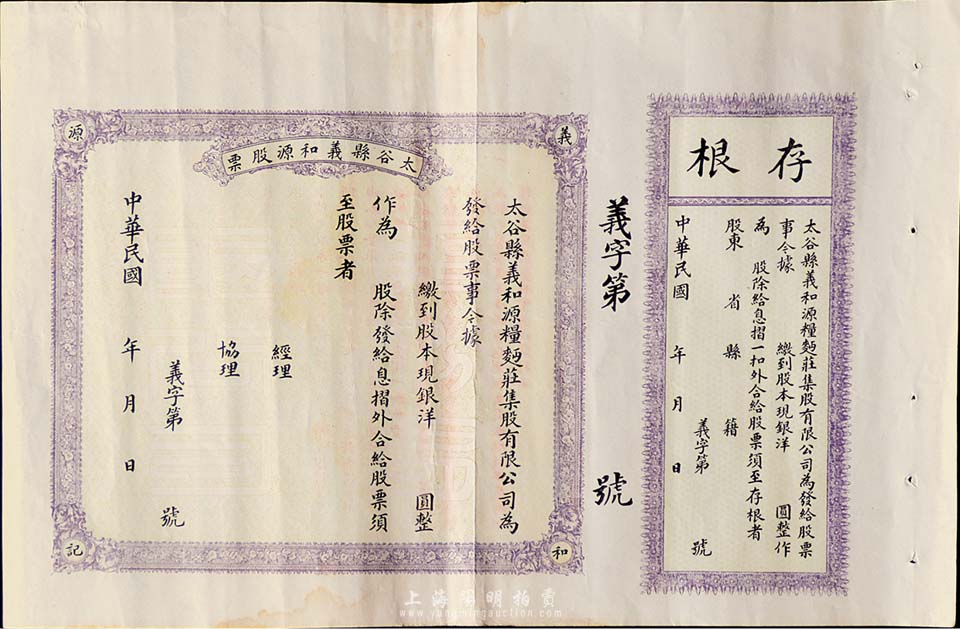 存根
太谷縣義和源糧麵莊集股有限公司為發給股票
事今據 繳到股本現銀洋 圓整作
為 股除給息摺一扣外合給股票須至存根者
股東 省 縣 籍
義字第 號
中華民國 年 月 日
義字第 號
太谷縣義和源股票
義
和
源
記
太谷縣義和源糧麵莊集股有限公司為
發給股票事今據
繳到股本現銀洋 圓整
作為 股除發給息摺外合給股票須
至股票者
經理
協理
義字第 號
中華民國 年 月 日
上海陽明拍賣
www.yangmingauction.com